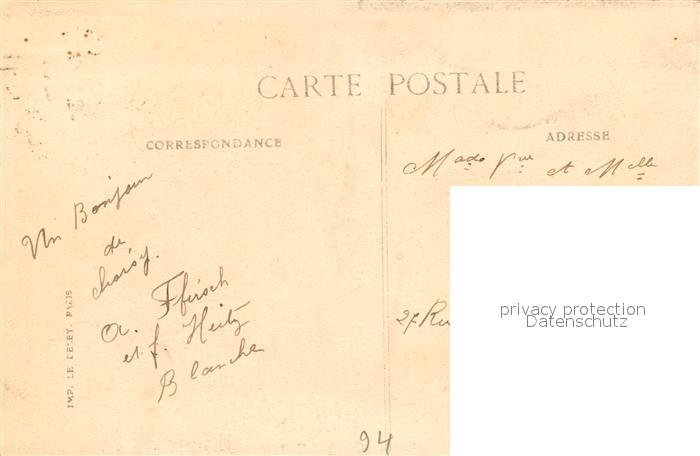 CARTE POSTALE
CORRESPONDANCE
ADRESSE
Made Vve et Melle
Un Bonjour
de
A.
et f. Heitz
Blanche
27 Ru
IMP. LE DELEY, PARIS
94
privacy protection
Datenschutz